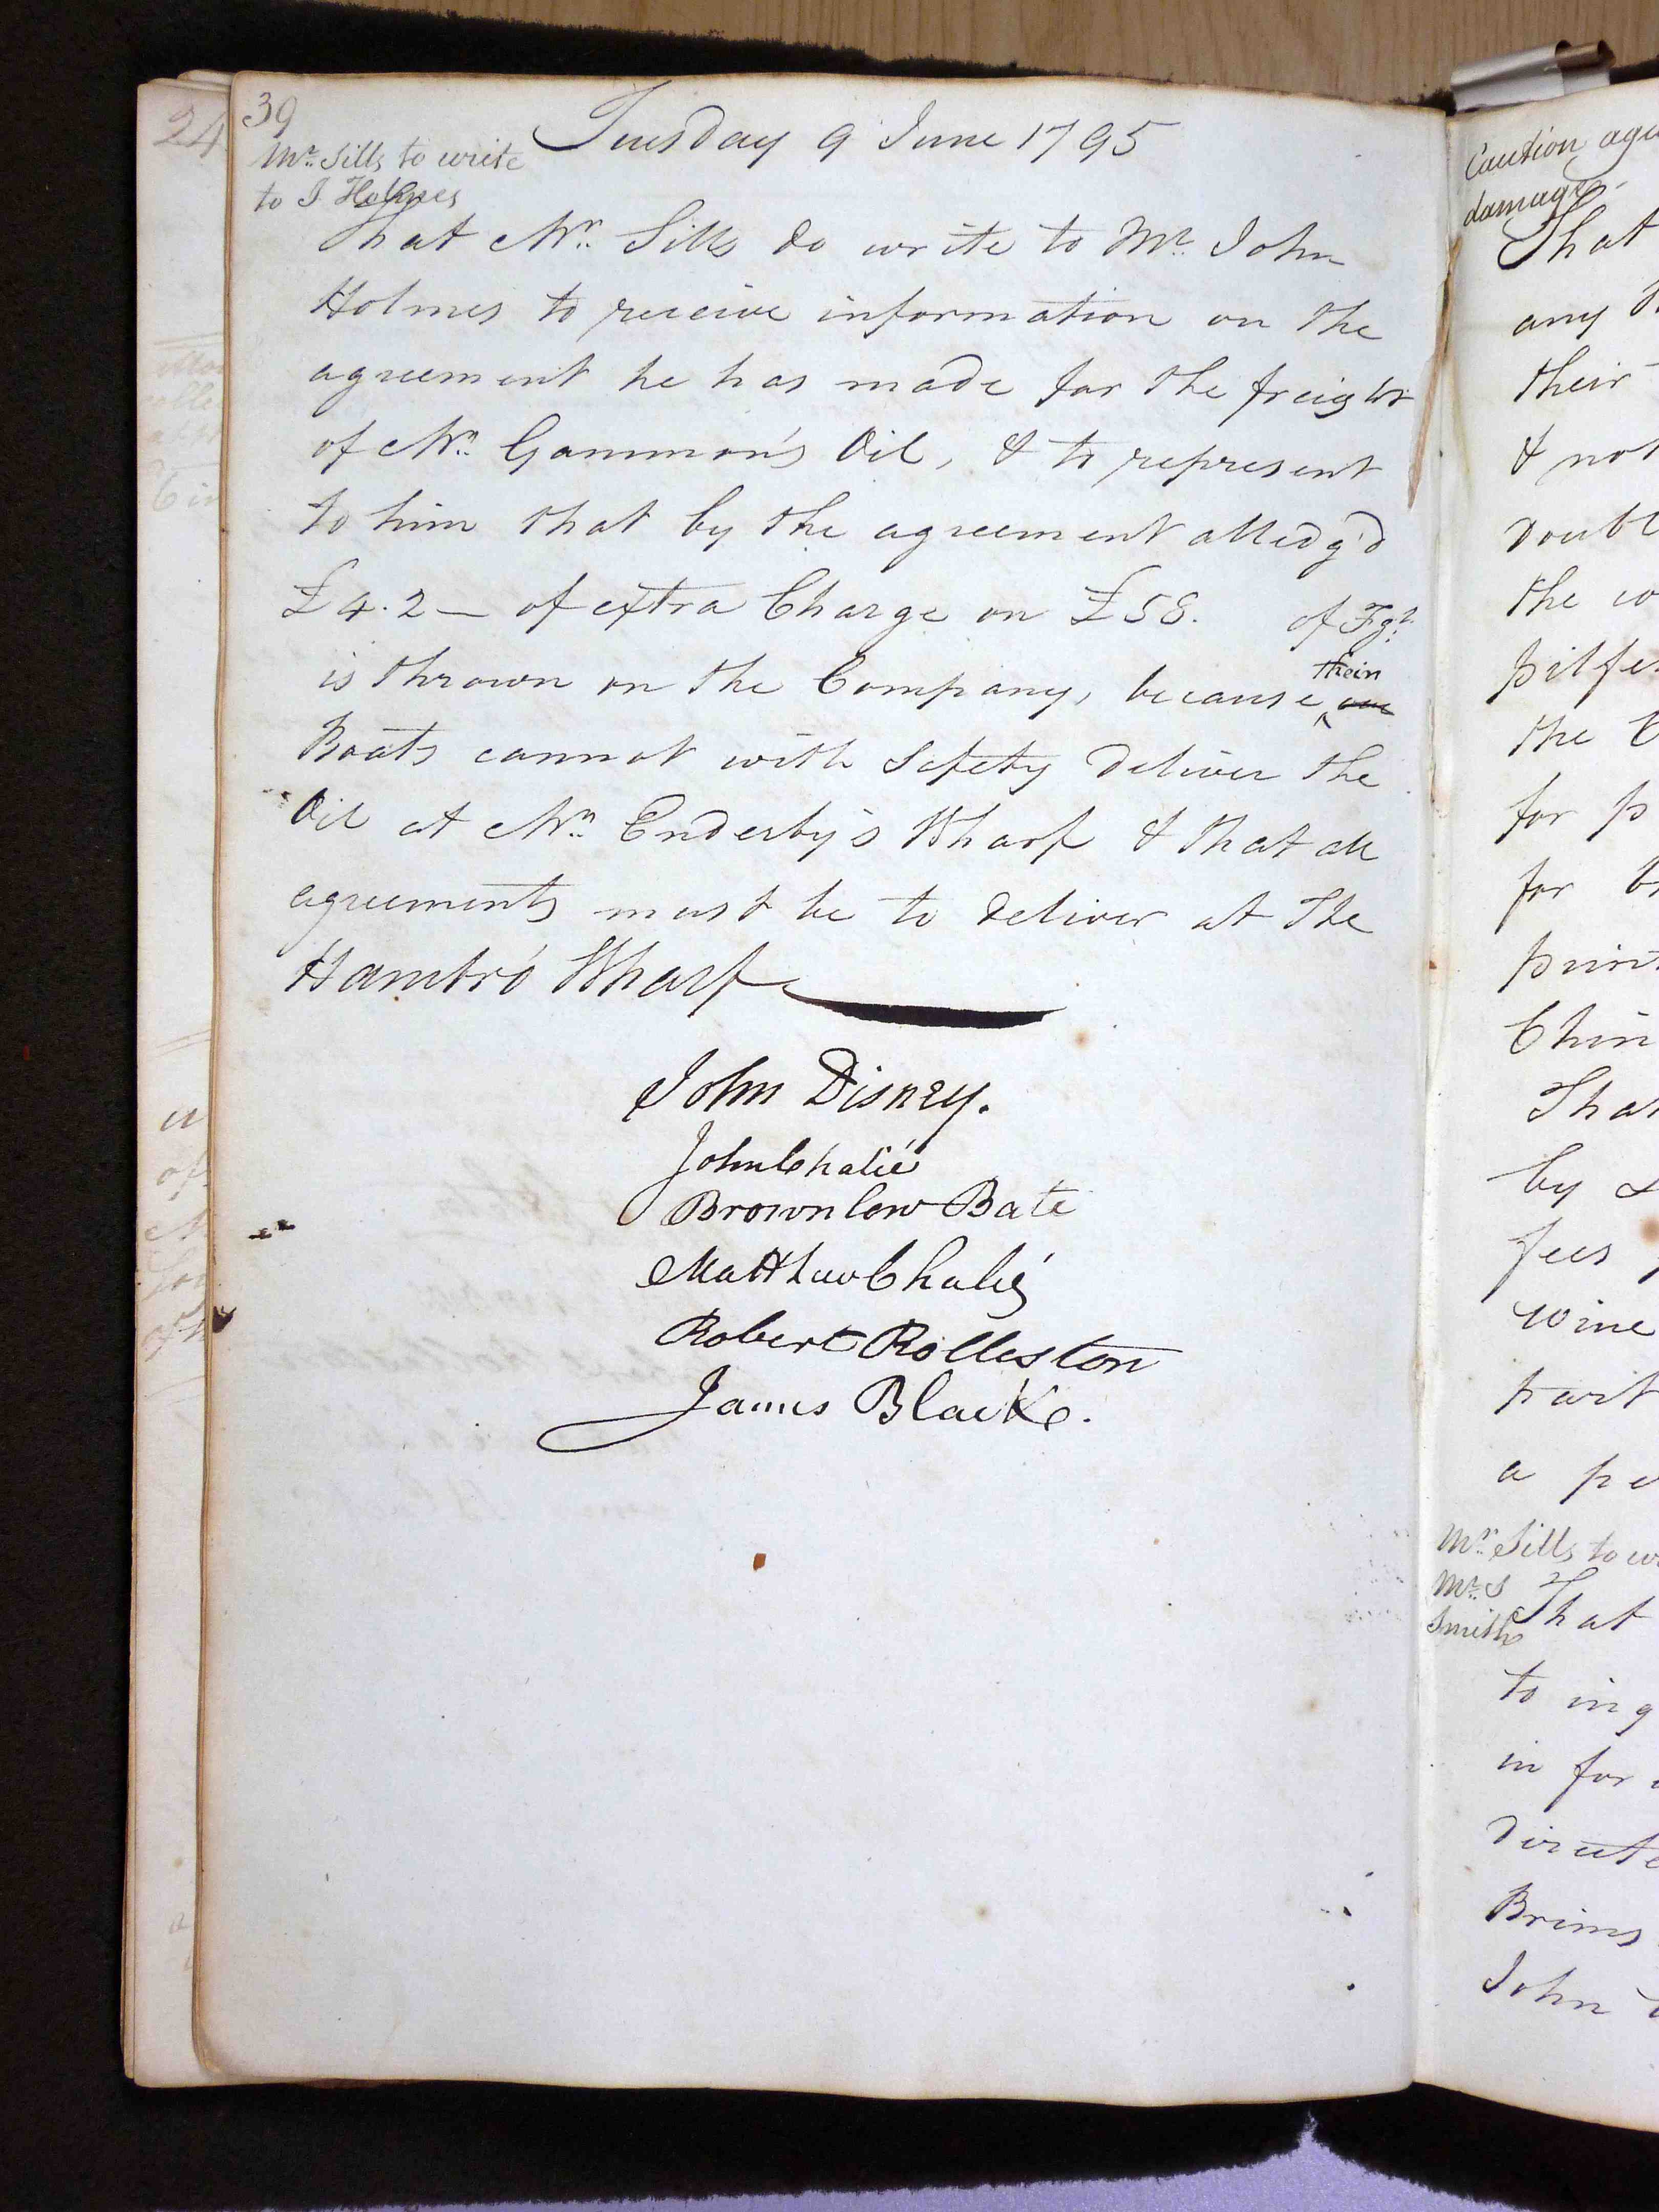 39
Tuesday 9 June 1795
Mr. Sills to write
to J Holmes
That Mr. Sills do write to Mr. John
Holmes to receive information on the
agreement he has made for the freight
of Mr. Gammon's Oil, & to represent
to him that by the agreement alledg'd
£4.2— of extra Charge on £58. of Fgt.
is thrown on the Company, because their our
Boats cannot with Safety deliver the
Oil at Mr. Enderby's Wharf & that all
agreements must be to deliver at the
Hambro' Wharf
John Disney.
John Chalié
Brownlow Bate
Matthew Chalié
Robert Rolleston
James Blacke.
24
Caution aga
damage
That
any
their
& not
doubl
the
pilfe
the
for p
for
Chin
That
by &
fees
wine
part
a pe
Mr. Sills to wr
Mr. S
Smith
That
to
in for
directe
Brims
John